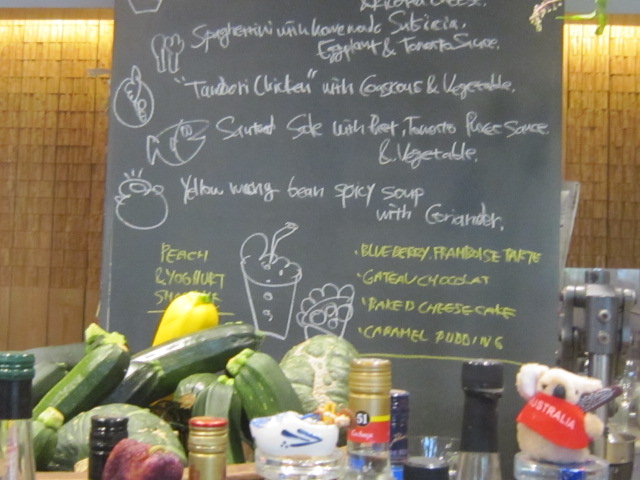 Spaghettini with homemade Salsiccia,
Eggplant & Tomato Sauce.
"Tandori Chicken" with Couscous & Vegetable.
Sauted Sole with Beet, Tomato Puree Sauce
& Vegetable.
Yellow mung bean spicy soup
with Coriander.
PEACH
& YOGHURT
SMOOTHIE
• BLUEBERRY, FRAMBOISE TARTE
• GATEAU CHOCOLAT
• BAKED CHEESE CAKE
• CARAMEL PUDDING
51
AUSTRALIA